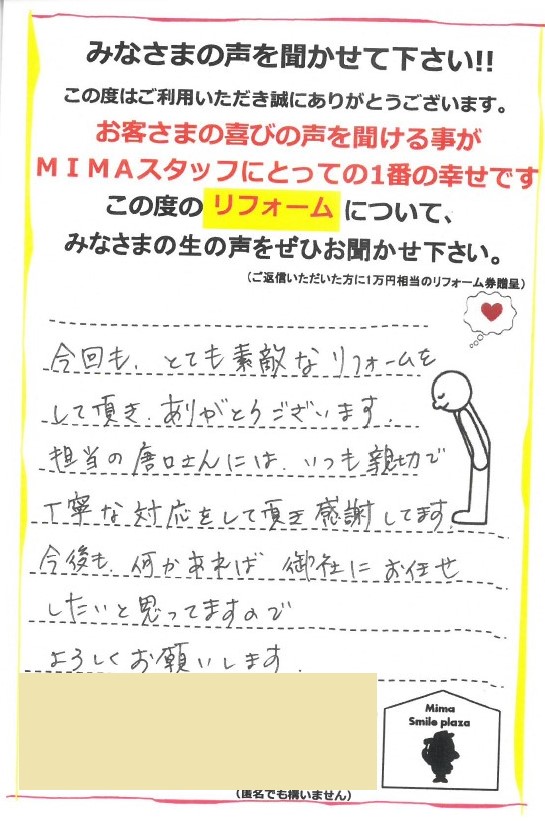 みなさまの声を聞かせて下さい!!
この度はご利用いただき誠にありがとうございます。
お客さまの喜びの声を聞ける事が
MIMAスタッフにとっての1番の幸せです
この度の リフォーム について、
みなさまの生の声をぜひお聞かせ下さい。
(ご返信いただいた方に1万円相当のリフォーム券贈呈)
今回も、とても素敵なリフォームを
して頂き、ありがとうございます。
担当の唐口さんには、いつも親切で
丁寧な対応をして頂き感謝してます。
今後も、何かあれば 御社に お任せ
したいと思ってますので
よろしくお願いします。
Mima
Smile plaza
(匿名でも構いません)